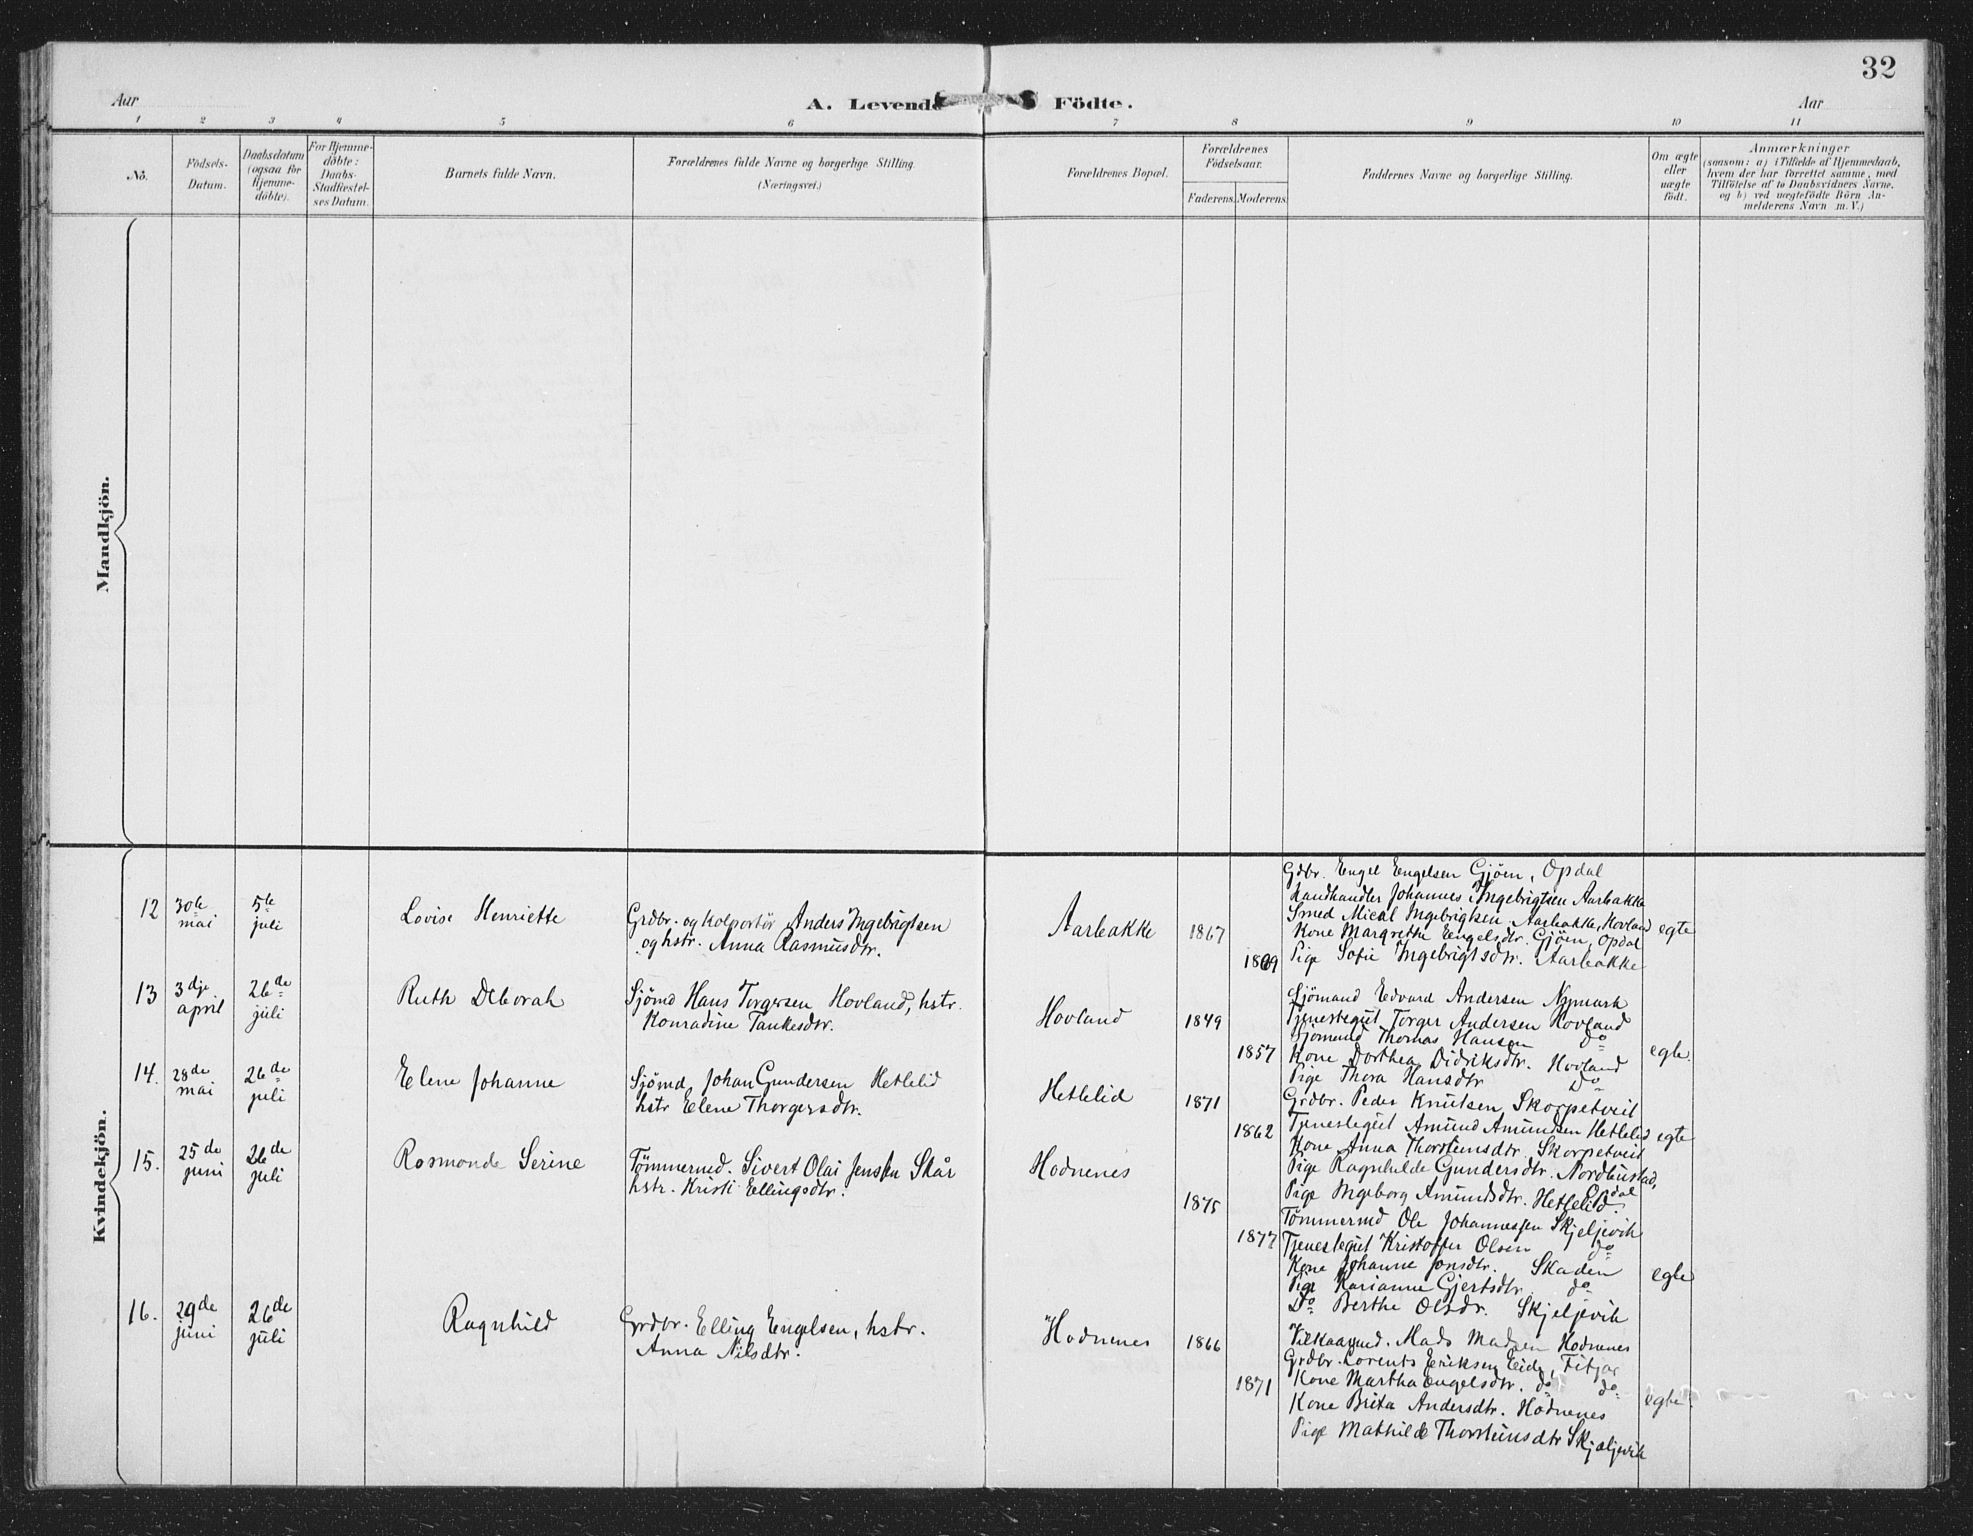 32
Aar
A. Levende Födte.
Aar
1 2 3 4 5 6 7 8 9 10 11
Nö.
Födsels-Datum.
Daabsdatum (ogsaa for Hjemme-döbte).
For Hjemme-döbte: Daabs-Stadfæstel-ses Datum.
Barnets fulde Navn.
Forældrenes fulde Navne og borgerlige Stilling.
(Næringsvei.)
Forældrenes Bopæl.
Forældrenes Födselsaar.
Faderens. Moderens.
Faddernes Navne og borgerlige Stilling.
Om ægte eller uægte födt.
Anmærkninger
(saasom: a) i Tilfælde af Hjemmedaab,
hvem der har forrettet samme, med
Tilföielse af to Daabsvidners Navne.
og b) ved uægtefödte Börn An-
melderens Navn m. V.)
Mandkjön.
Kvindekjön.
12
30te mai
5te juli
Lovise Henriette
Grdbr. og Kolportör Anders Ingebrigtsen
og hstr. Anna Rasmusdtr.
Aarbakke
1867
1869
Gdbr. Engel Engelsen Gjöen, Opdal
Landhandler Johannes Ingebrigtsen Aarbakke
Smed Mical Ingebrigtsen Aarbakke, Hovland
Kone Margrethe Engelsdtr. Gjöen, Opdal
Pige Sofie Ingebrigtsdtr. Aarbakke
egte
13
3dje april
26de juli
Ruth Deborah
Sjömd Hans Torgersen Hovland, hstr.
Konradine Tankesdtr.
Hovland
1849
1857
Sjömand Edvard Andersen Nymark
Tjenestegut Torger Andersen Hovland
Sjömand Thomas Hansen do
Kone Dorthea Didriksdtr. Hovland
Pige Thora Hansdtr Do
egte.
14.
28de mai
26de juli
Elene Johanne
Sjömd Johan Gundersen Hetlelid
hstr Elene Thorgersdtr.
Hetlelid
1871
1862
Grdbr. Peder Knutsen Skorpetveit
Tjenestegut Amund Amundsen Hetlelid
Kone Anna Thorsteinsdtr. Skorpetveit
Pige Ragnhilde Gundersdtr. Nordhustad,
Opdal
Pige Ingeborg Amundsdtr. Hetlelid.
egte
15.
25de juni
26de juli
Rosmonde Serine
Tömmermd. Sivert Olai Jensen Skår
hstr. Kristi Ellingsdtr.
Hodnenes
1875
1877
Tömmermd Ole Johannessen Skjeljevik
Tjenestegut Kristoffer Olsen do
Kone Johanne Jonsdtr. Skaden
Pige Karianne Gjertsdtr. do
Do Berthe Olsdr. Skjeljevik
egte
16.
29de juni
26de juli
Ragnhild
Grdbr. Elling Engelsen, hstr.
Anna Nilsdtr.
Hodnenes
1866
1871
Vilkaarmd. Mads Madsen Hodnenes
Grdbr. Lorents Eriksen Eide, Fitjar
Kone Martha Engelsdtr. do do
Kone Brita Andersdtr. Hodnenes
Pige Mathilde Thorsteinsdtr Skjeljevik
egte.